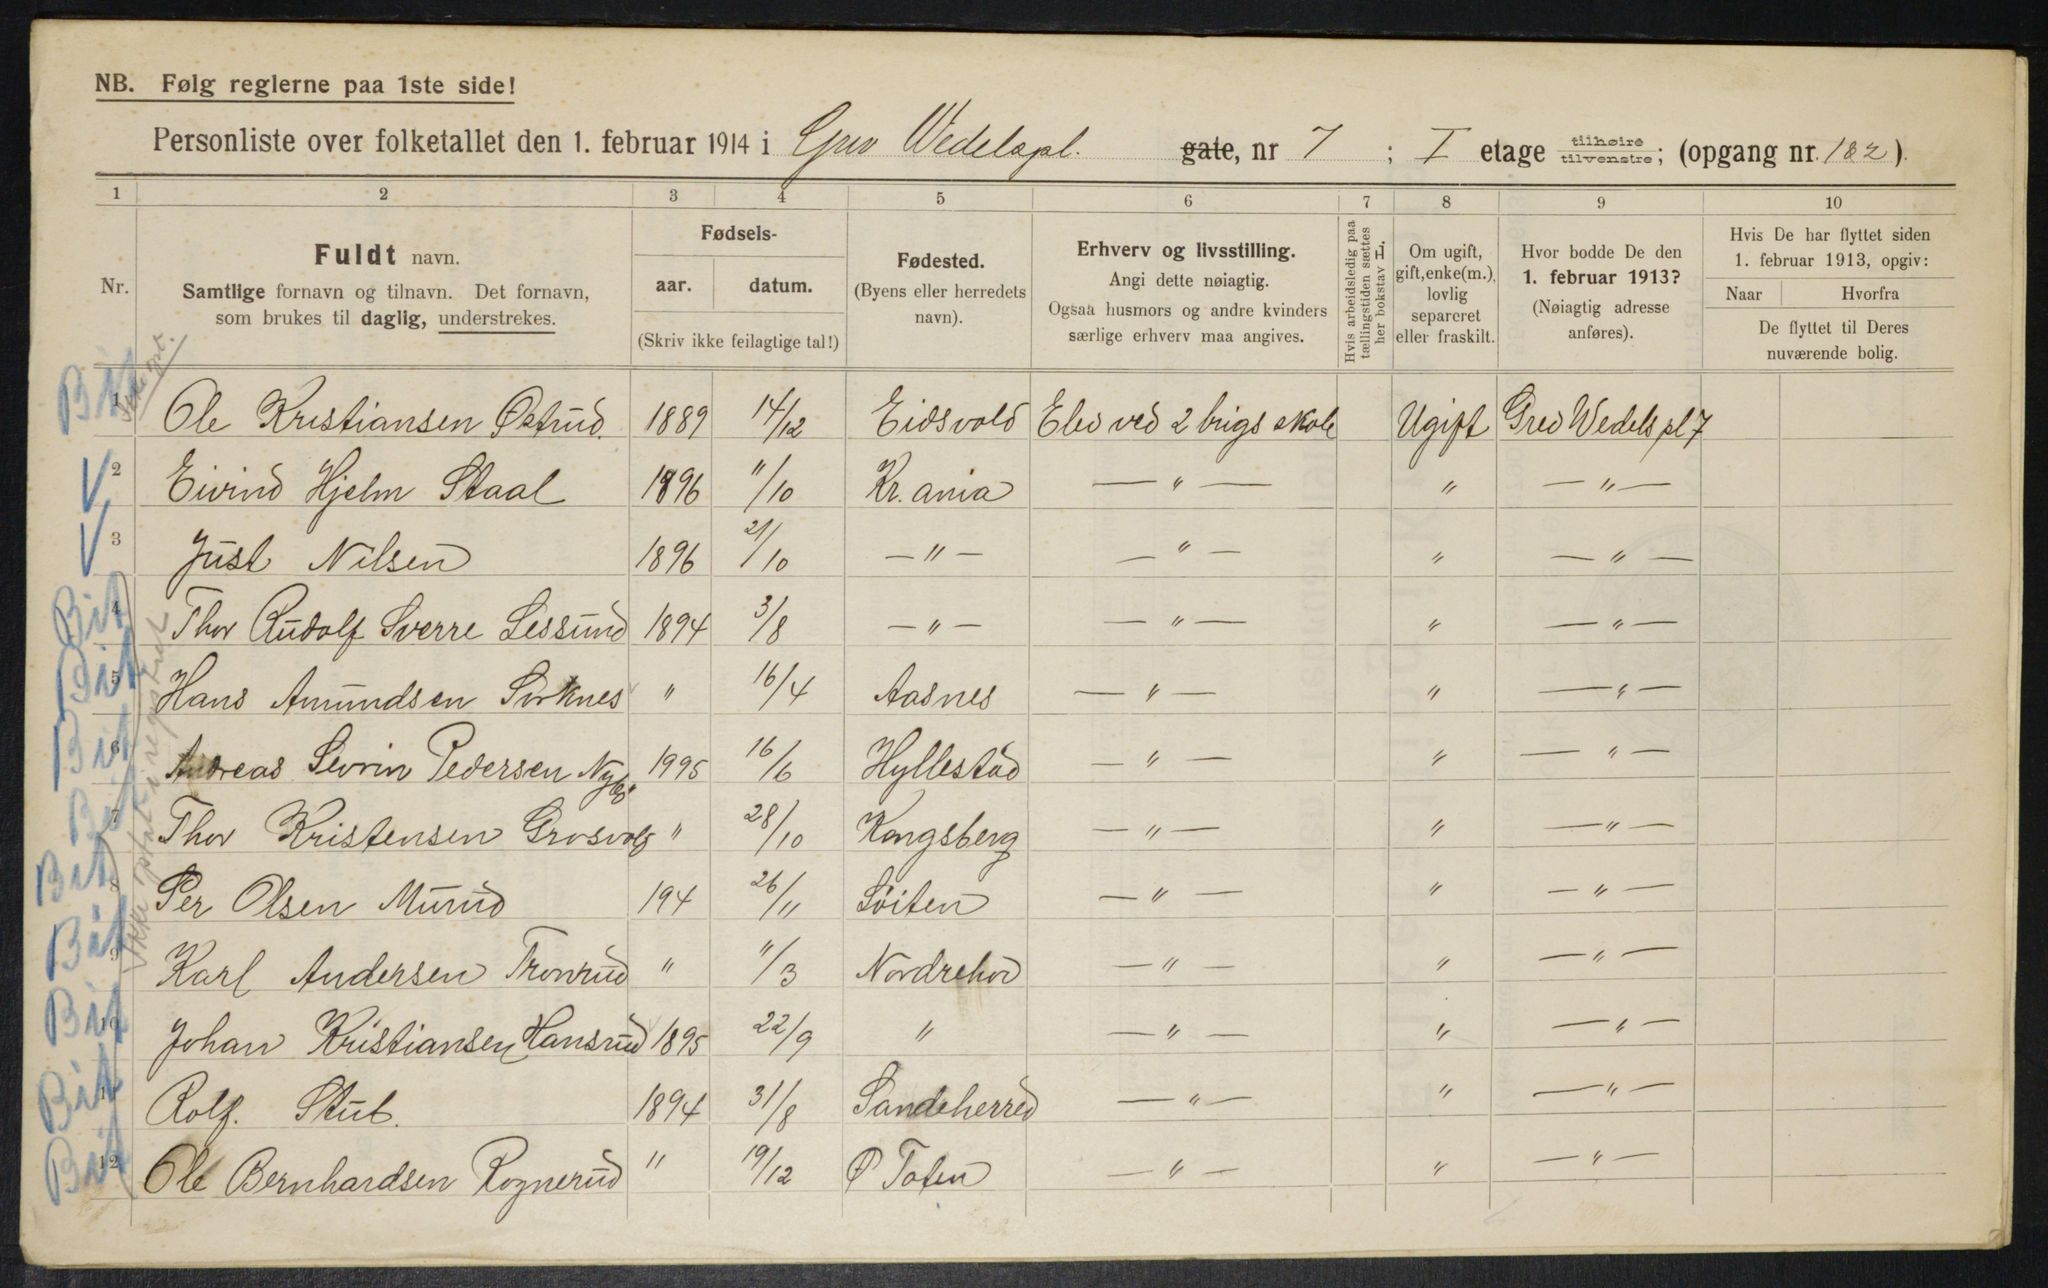 NB. Følg reglerne paa 1ste side!
Personliste over folketallet den 1. februar 1914 i Grev Wedelspl. gate, nr 7 ; I etage tilhøire tilvenstre; (opgang nr. 1&2).
1 2 3 4 5 6 7 8 9 10
Nr.
Fuldt navn.
Samtlige fornavn og tilnavn. Det fornavn,
som brukes til daglig, understrekes.
Fødsels-
aar. datum.
(Skriv ikke feilagtige tal!)
Fødested.
(Byens eller herredets
navn).
Erhverv og livsstilling.
Angi dette nøiagtig.
Ogsaa husmors og andre kvinders
særlige erhverv maa angives.
Hvis arbeidsledig paa
tællingstiden sættes
her bokstav L.
Om ugift,
gift, enke(m.),
lovlig
separeret
eller fraskilt.
Hvor bodde De den
1. februar 1913?
(Nøiagtig adresse
anføres).
Hvis De har flyttet siden
1. februar 1913, opgiv:
Naar Hvorfra
De flyttet til Deres
nuværende bolig.
Bit 1 Ole Kristiansen Østrud. 1889 14/12 Eidsvold Elev ved 2 brigs skole Ugift Grev Wedels pl 7
V 2 Eivind Hjelm Staal 1896 11/10 Kr. ania — " — " — " —
V 3 Just Nilsen 1896 21/10 — " — — " — " — " —
Bit 4 Thor Rudolf Sverre Lessund 1894 3/8 — " — — " — " — " —
Bit 5 Hans Amundsen Sorknes " 16/4 Aasnes — " — " — " —
Bit 6 Andreas Sevrin Pedersen Nybø 1995 16/6 Hyllestad — " — " — " —
Bit 7 Thor Kristensen Grosvold " 28/10 Kongsberg — " — " — " —
Bit 8 Per Olsen Murud 194 26/11 Løiten — " — " — " —
Bit 9 Karl Andersen Tronrud " 11/3 Nordrehov — " — " — " —
Bit 10 Johan Kristiansen Hansrud 1895 22/9 " — " — " — " —
Bit 11 Rolf. Stub. 1894 31/8 Sandeherred — " — " — " —
Bit 12 Ole Bernhardsen Rognerud " 19/12 Ø Toten — " — " — " —
Ikke optat i registret